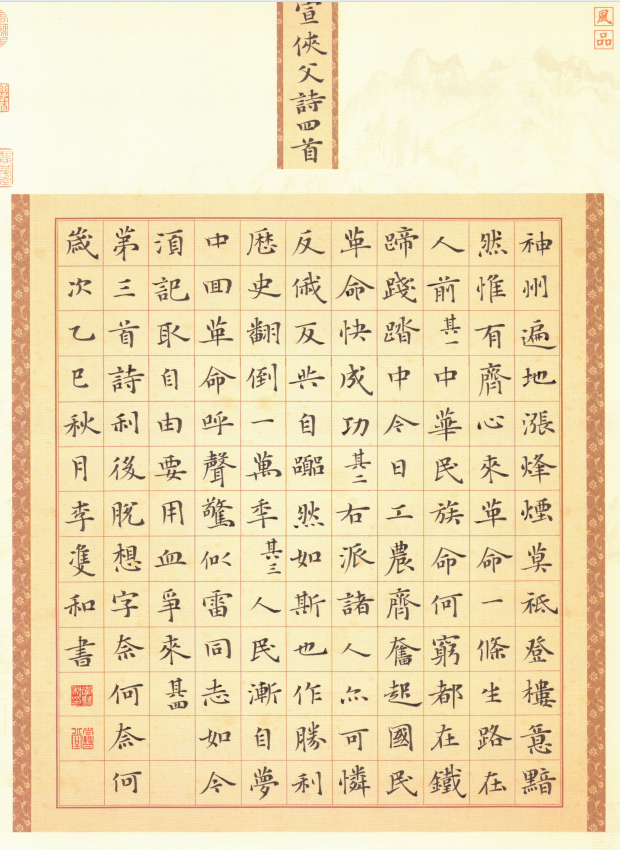 風品
宣俠父詩四首
神州遍地漲烽煙莫祗登樓意黯
然惟有齊心來革命一條生路在
人前其一中華民族命何窮都在鐵
蹄踐踏中今日工農齊奮起國民
革命快成功其二右派諸人尔可憐
反俄反共自然如斯也作勝利
厯史翻倒一萬秊其三人民漸自夢
中囬革命呼聲驚似雷同志如今
須記取自由要用血爭來其四
第三首詩利後脫想字奈何奈何
歲次乙巳秋月李隻和書